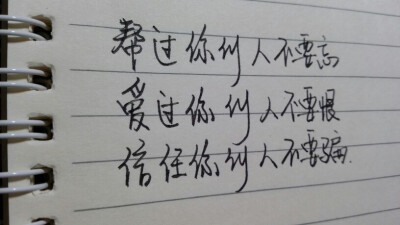 帮过你的人不要忘
爱过你的人不要恨
信任你的人不要骗.